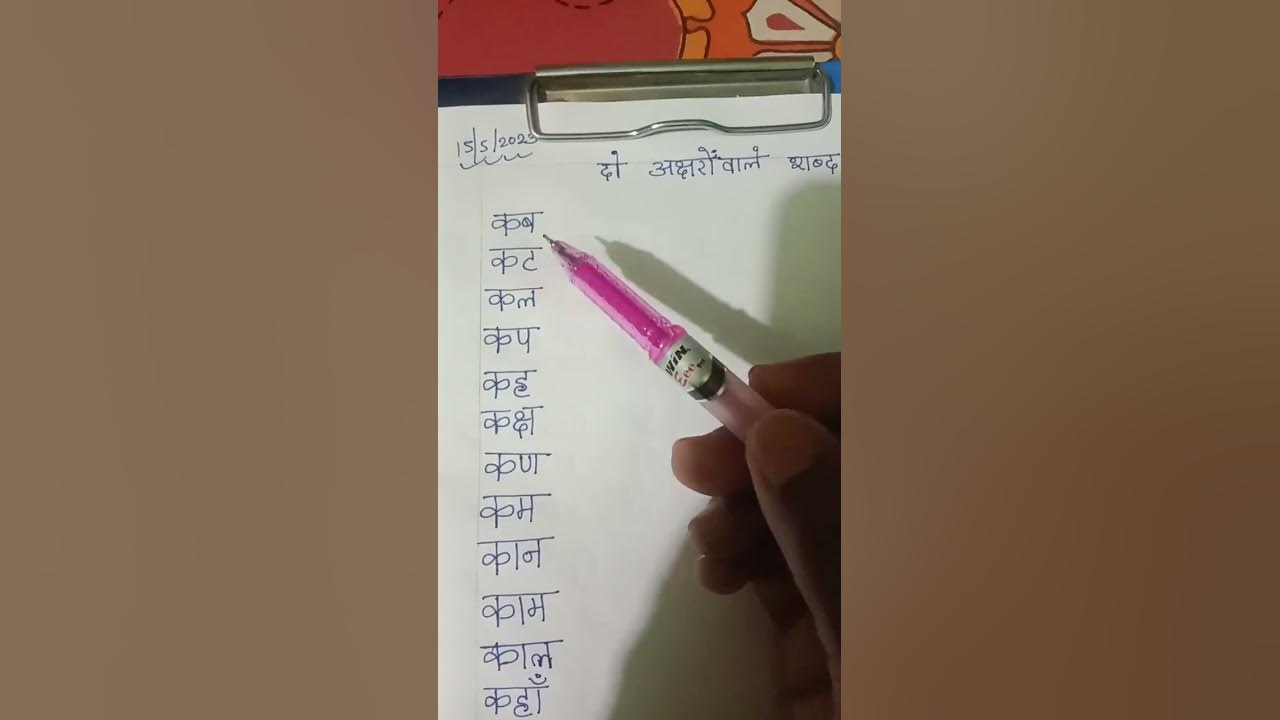 15/5/2023
दो अक्षरों वाले शब्द
कब
कट
कल
कप
कह
कक्ष
कण
कम
कान
काम
काल
कहाँ
WIN